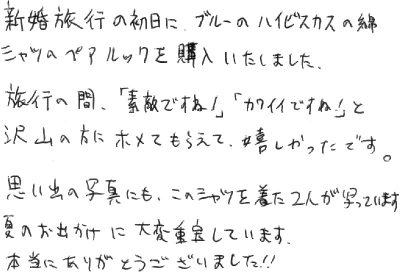 新婚旅行の初日に、ブルーのハイビスカスの綿
シャツのペアルックを購入いたしました。
旅行の間、「素敵ですね!」「カワイイですね!」と
沢山の方にホメてもらえて、嬉しかったです。
思い出の写真にも、このシャツを着た2人が写っています
夏のお出かけに大変重宝しています。
本当にありがとうございました!!